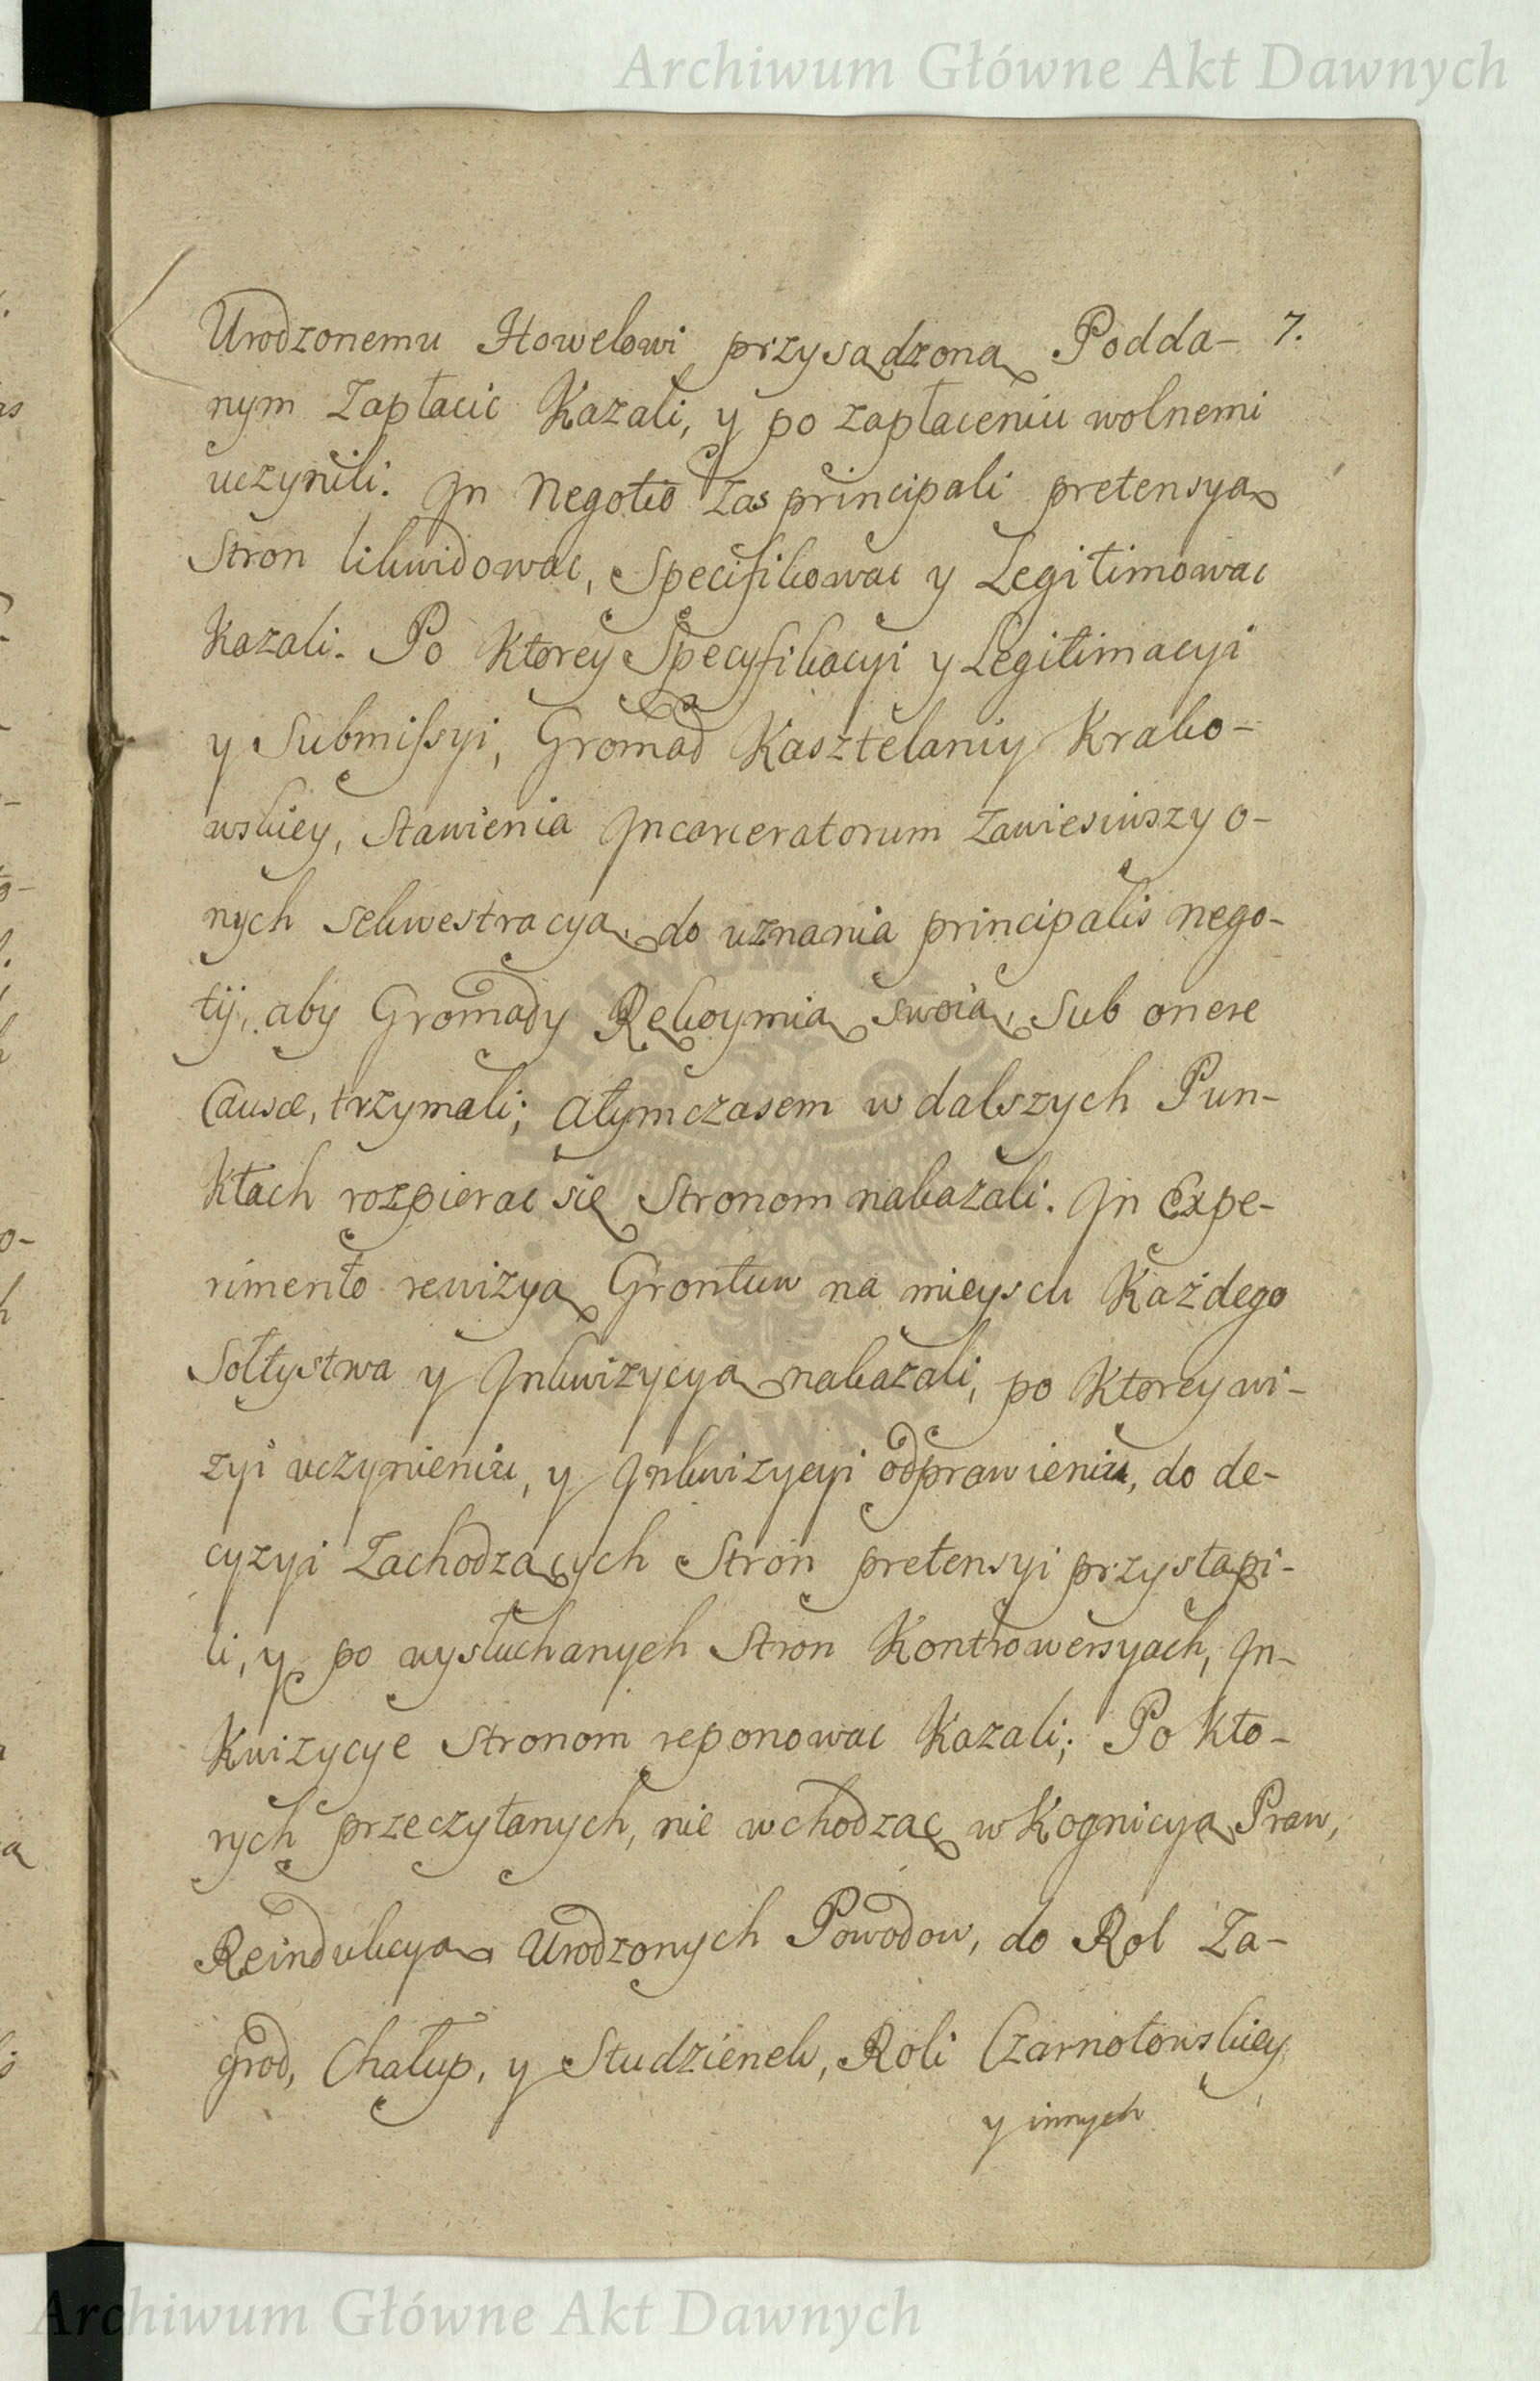 Archiwum Główne Akt Dawnych
Urodzonemu Howelowi przysądzoną Podda- 7.
nym Zapłacic Kazali, y po zapłaceniu wolnemi
uczynili. In Negotio Zas principali pretensyą
Stron likwidowac, Specifikowac y Legitimowac
Kazali. Po Ktorey Specyfikacyi y Legitimacyi
y Submissyi, Gromad Kasztelaniy Krako-
wskiey, Stawienia Incarceratorum Zawiesiwszy o-
nych sekwestracyą, do uznania principalis nego-
tij, aby Gromady Rekoymią swoią, Sub onere
Causæ, trzymali; atymczasem w dalszych Pun-
Ktach rozpierac się Stronom nakazali. In Expe-
rimento rewizyą Grontuw na mieyscu Każdego
Sołtystwa y Inkwizycyą nakazali, po Ktorey wi-
zyi uczynieniu, y Inkwizycyi odprawieniu, do de-
cyzyi Zachodzących Stron pretensyi przystąpi-
li, y po wysłuchanych Stron Kontrowersyach, In-
Kwizycye Stronom reponowac Kazali; Po Kto-
rych przeczytanych, nie wchodząc w Kognicyą Praw,
Reindukcyą Urodzonych Powodow, do Rol Za-
grod, Chałup, y Studzienek, Roli Czarnotowskiey
y innych
Archiwum Główne Akt Dawnych